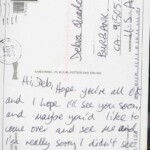 Debra
BURBANK
CA. 91505
U.S.A
Hi Deb, Hope you're all OK
and I hope I'll see you soon
and maybe you'd like to
come over and see me and
I'm really sorry I didn't see